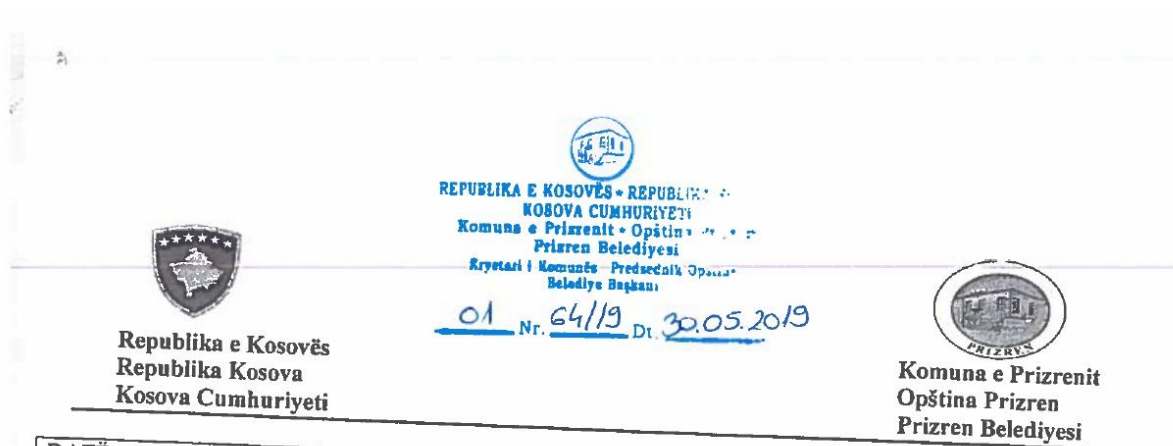 REPUBLIKA E KOSOVËS • REPUBLIKA
KOSOVA CUMHURİYETİ
Komuna e Prizrenit • Opština
Prizren Belediyesi
Kryetari i Komunës Predsednik Opštine
Belediye Başkanı
01 Nr. 64/19 Dt. 30.05.2019
Republika e Kosovës
Republika Kosova
Kosova Cumhuriyeti
PRIZREN
Komuna e Prizrenit
Opština Prizren
Prizren Belediyesi